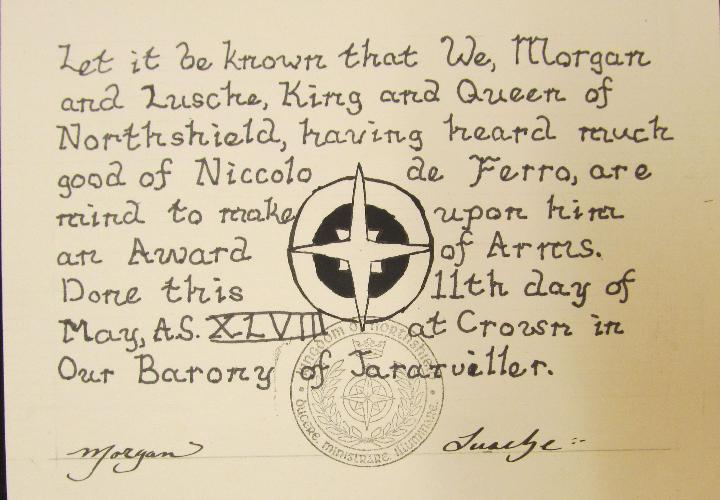 Let it be known that We, Morgan
and Lusche, King and Queen of
Northshield, having heard much
good of Niccolo de Ferro, are
mind to make upon him
an Award of Arms.
Done this 11th day of
May, A.S. XLVIII at Crown in
Our Barony of Jararvellir.
Kingdom of Northshield
ducere, ministrare, illuminare
Morgan
Lusche